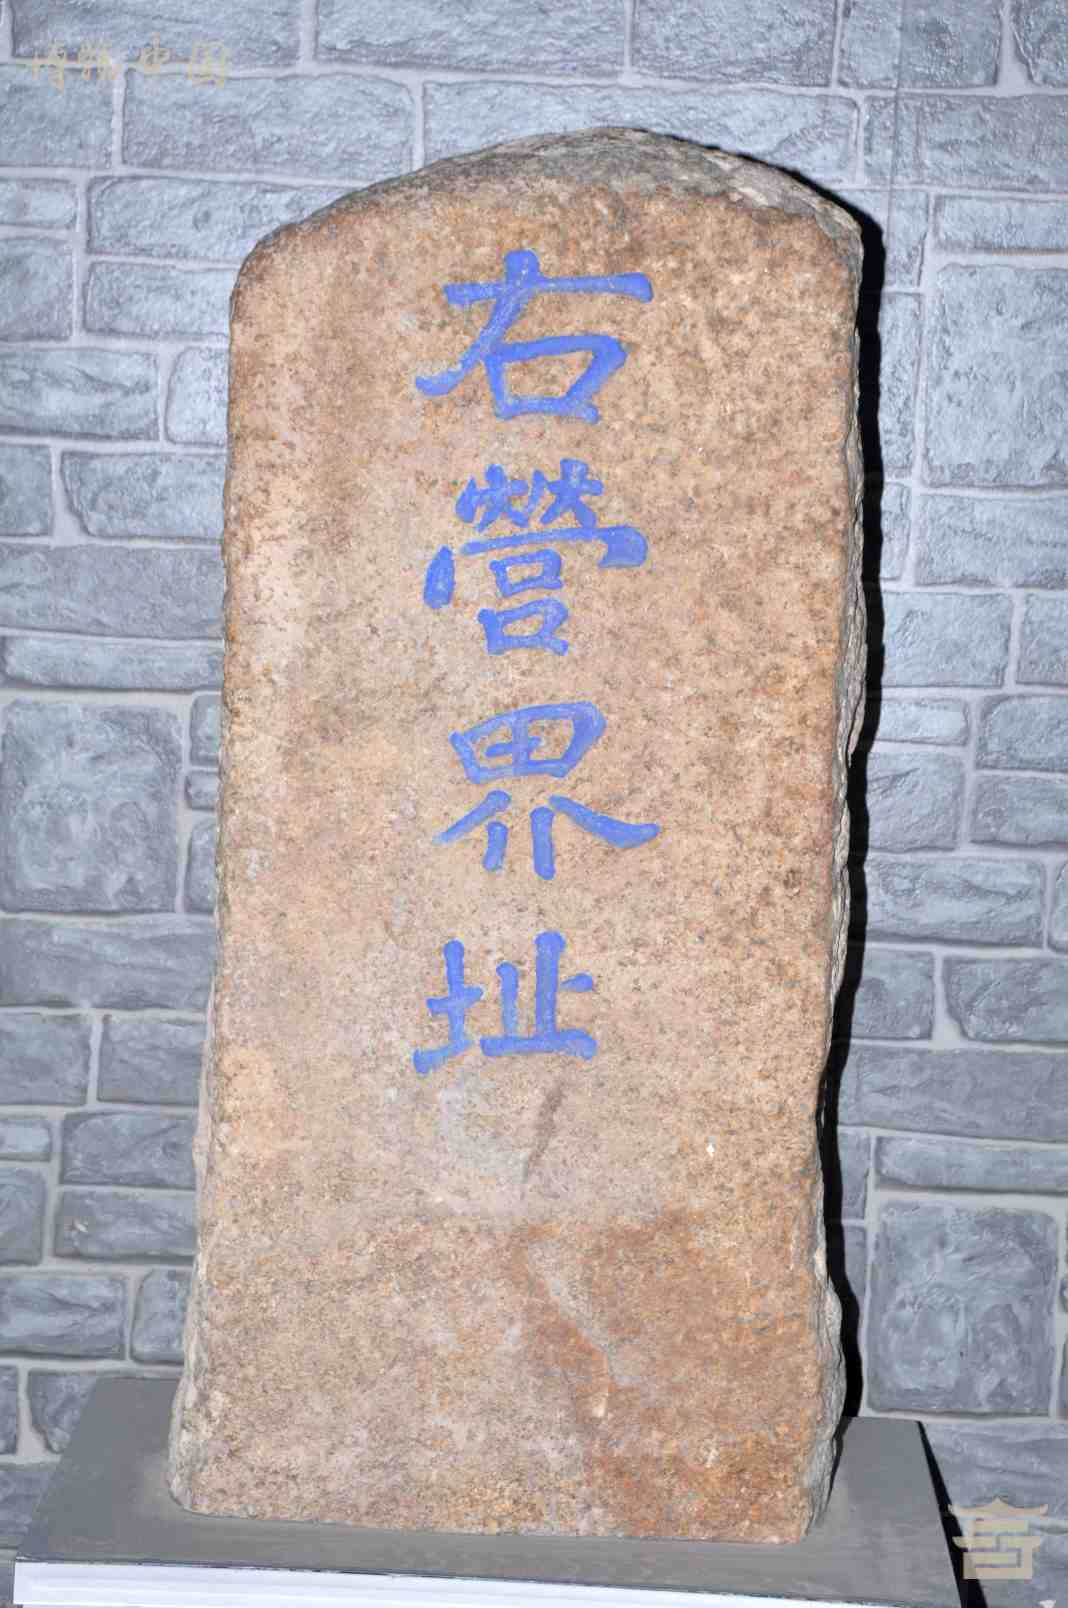 博物中国
右營界址